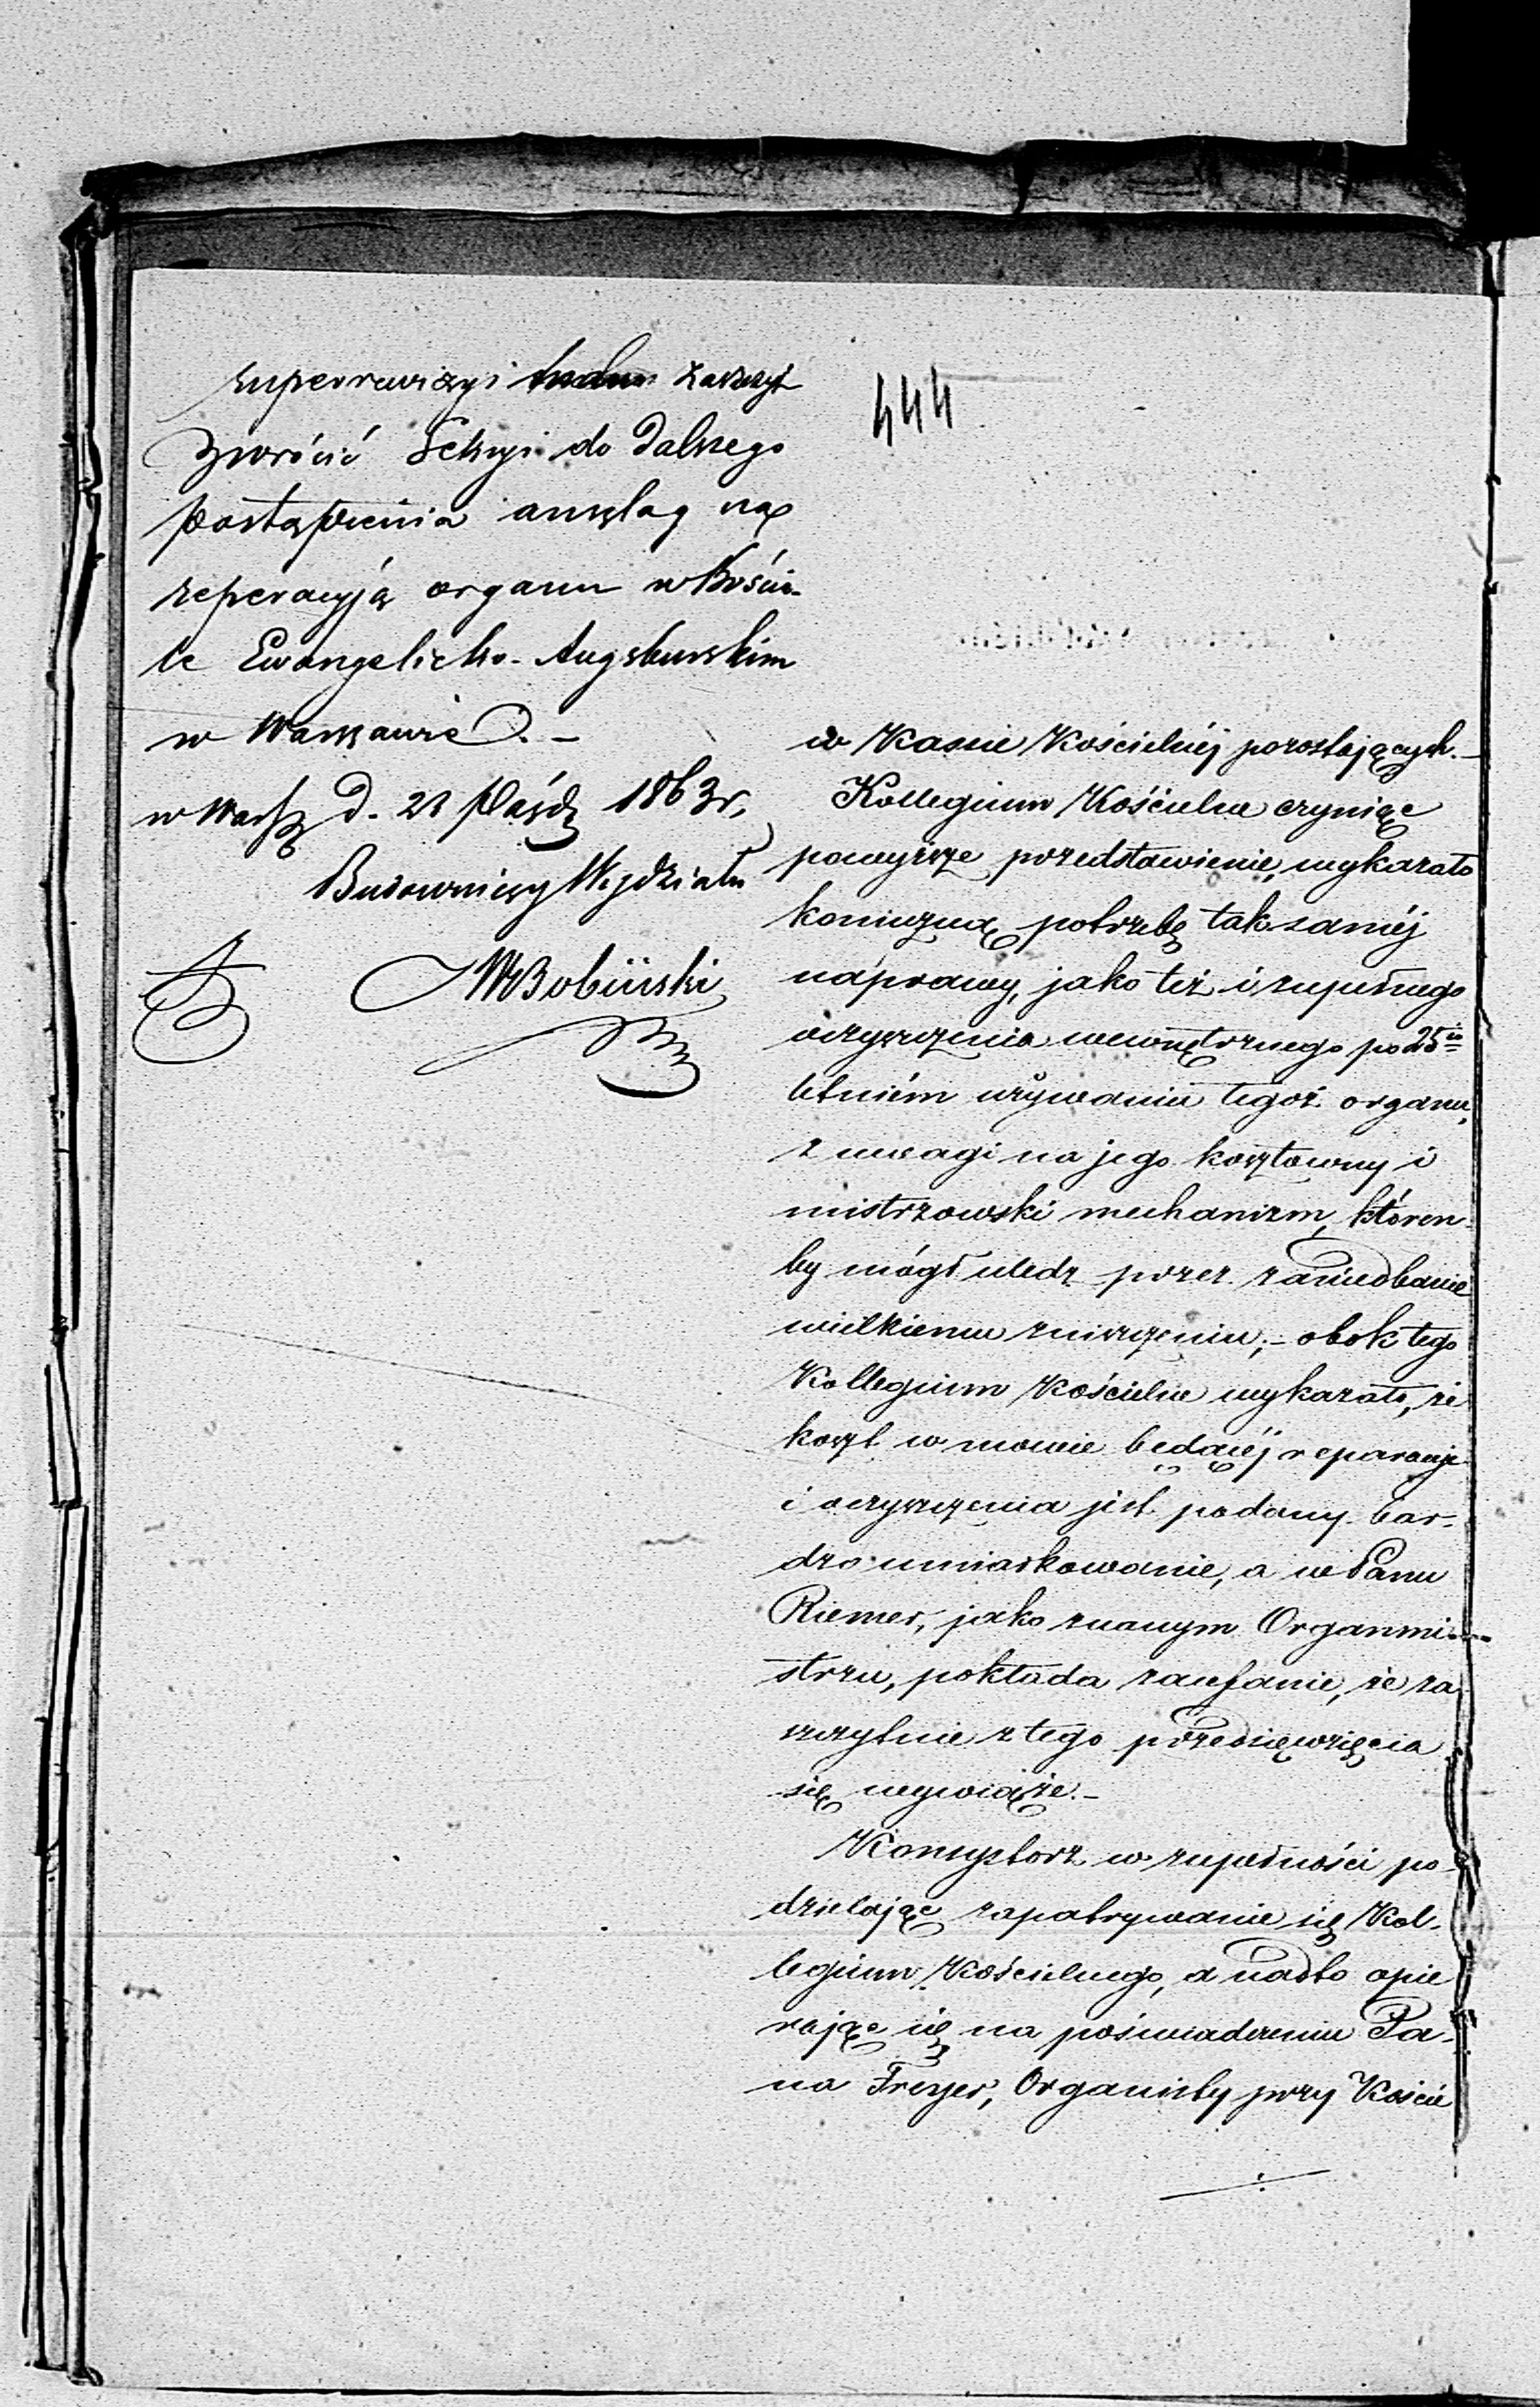 superrewizyi zaszczyt
zwrócić Sekcyi do dalszego
postąpienia anszlag na
reperacyją organu w Koście-
le Ewangelicko-Augsburskim
w Warszawie. –
w Warsz d. 21 Paźdz 1863 r.
Budowniczy Wydziału
Bobiński
444
w Kassie Kościelnéj pozostających. –
Kollegium Kościelne czyniąc
powyższe przedstawienie, wykazało
konieczną potrzebę tak saméj
náprawy, jako też i zupełnego
oczyszczenia wewnętrznego po 25io
letniém używaniu tegoż organu,
z uwagi na jego kosztowny i
mistrzowski mechanizm, któren-
by mógł uledz przez zaniedbanie
wielkiemu zniszczeniu; – obok tego
Kollegium Kościelne wykazało, że
koszt w mowie będącéj reparacyi
i oczyszczenia jest podany bar-
dzo umiarkowanie, a w Panu
Riemer, jako znanym Organmi-
strzu, pokłada zaufanie, że za-
szczytnie z tego przedsięwzięcia
się wywiąże. –
Konsystorz w zupełności po-
dzielając zapatrywanie się Kol-
legium Kościelnego, a nadto opie
rając się na poświadczeniu Pa-
na Freyer, Organisty przy Koście